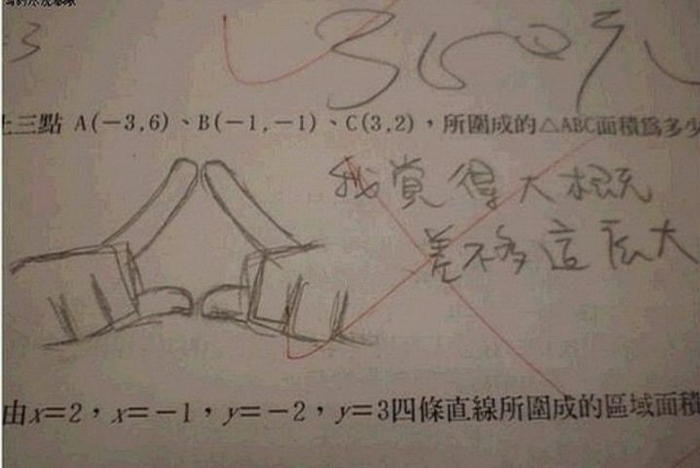 3
350元
上三點 A(−3,6)、B(−1,−1)、C(3,2)，所圍成的△ABC面積為多少
我覺得大概
差不多這麼大
由x=2，x=−1，y=−2，y=3四條直線所圍成的區域面積